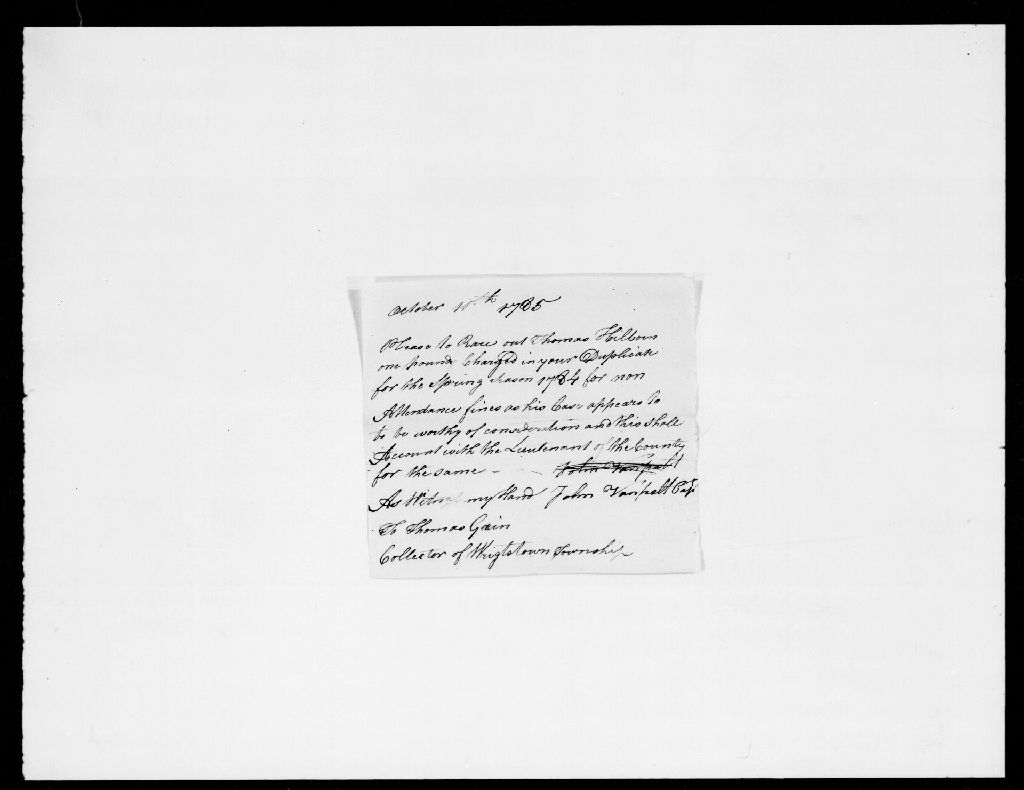 October 10th 1785
Please to Rare out Thomas Hilborn
one pound Charged in your Duplicate
for the Spring season 1784 for non
Attendance fines as his Case appears to
to be worthy of consideration and this shall
Account with the Lieutenant of the County
for the same - John Vanpelt
As Witness my Hand John Vanpelt Capt
To Thomas Gain
Collector of Wrigtstown Township